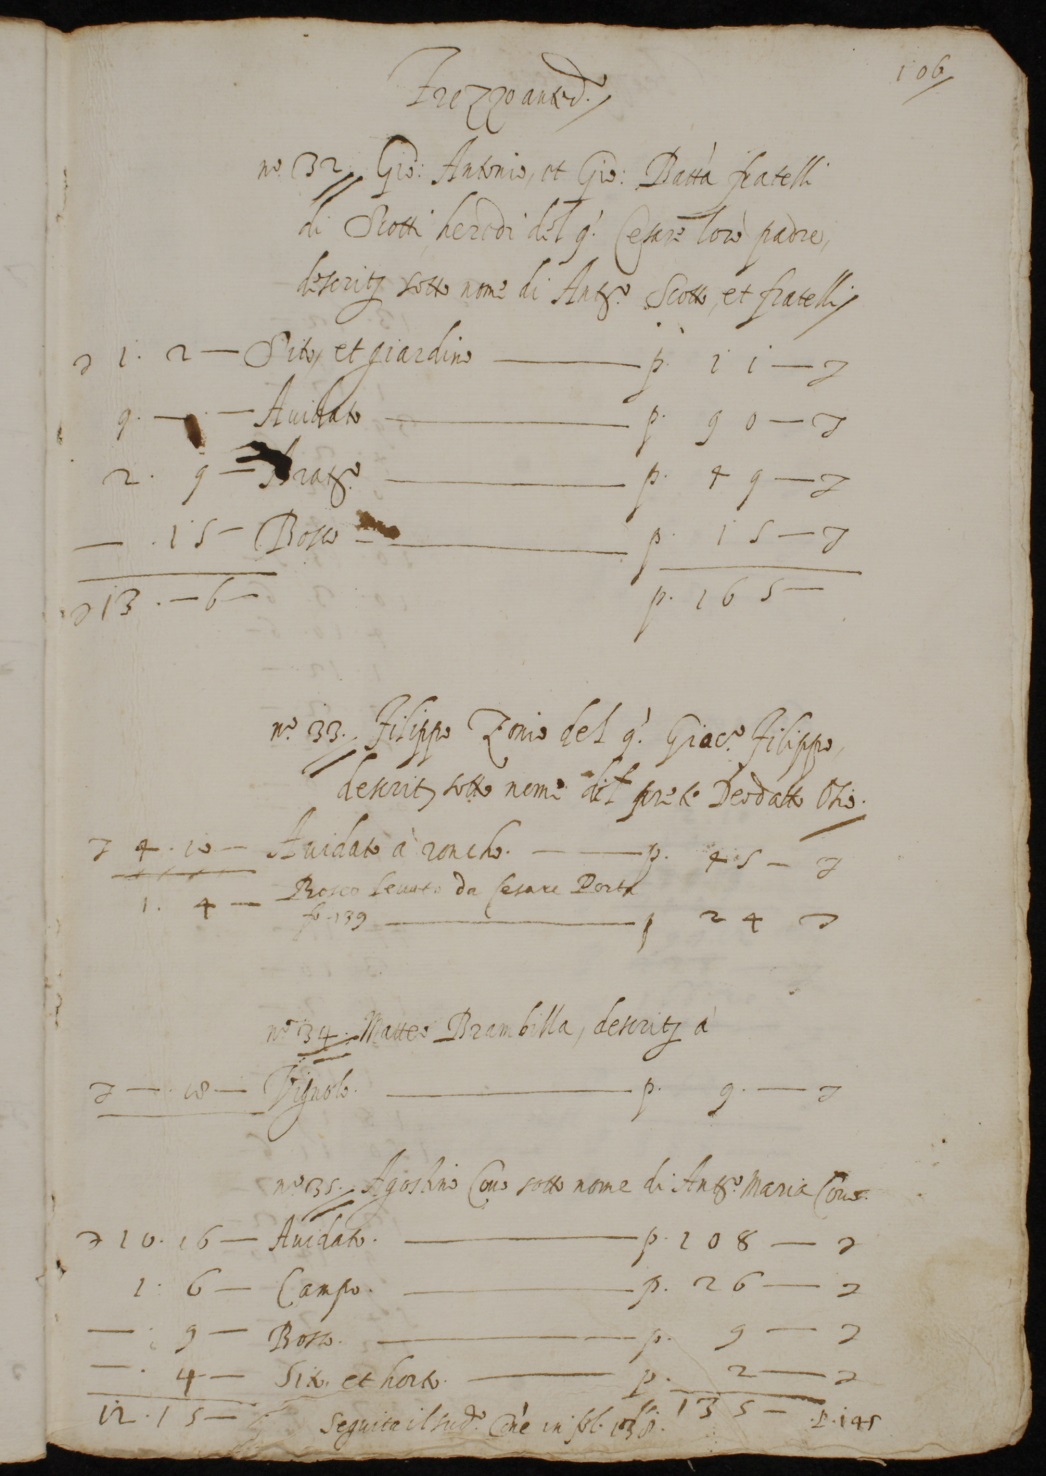 106
Frezzo anted.º
nº 32 Gio: Antonio, et Gio: Batta fratelli
di Scotti heredi del q. Cesare loro padre,
descritj sotto nome di Antº. Scotto, et fratelli
1. 2 — Sito, et giardino — p. 11 —
9. — Auidato — p. 90 —
2. 9 — — p. 49 —
— . 15 — Bosco — p. 15 —
13. — 6 — p. 165 —
nº 33. Filippo Zonio del q. Giacº. Filippo,
descritj sotto nome del prete Deodatto
4. 10 — Auidato à roncho. — p. 45 —
1. 4 — Bosco leuato da Cesare Porta
fº 139 — p 24
nº 34. Matteo Brambilla, descritj à
— . 18 — Vignolo. — p. 9. —
nº 35. Agostino Coue sotto nome di Antº. Maria Coue.
10. 16 — Auidato. — p. 108 —
1. 6 — Campo. — p. 26 —
— . 9 — Bosco. — p. 9 —
— . 4 — Sito, et horto. — p. 2 —
12. 15 — 135 —
Seguita il sudº. in fol.